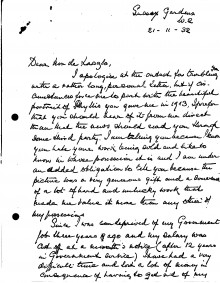 Sussex Gardens
W.2
21-11-32
Dear Mr de Laszlo,
I apologise at the outset for troubling
with a rather long, personal letter, but if
circumstances force me to part with the beautiful
portrait of Phyllis you gave me in 1913, I prefer
that you should hear of it from me direct
than that the news should reach you through
some third party. I am telling you because I know
you hate your work being sold and like to
know in whose possession it is and I am under
an added obligation to tell you because the
picture was a very generous gift and a
of a lot of hard and unlucky work that
made me value it more than any other of
my possessions
Since I was deprived of my Government
job three years ago and my salary was
cut off at a month's notice (after 12 years
in Government service) I have had a very
difficult time and lost a lot of money in
consequence of having to get rid of my